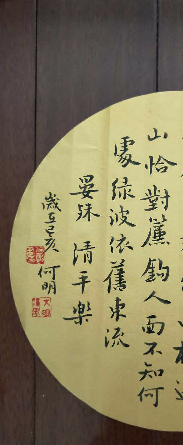 山恰對簾鈎人面不知何
處綠波依舊東流
晏殊 清平樂
歲在己亥
何明